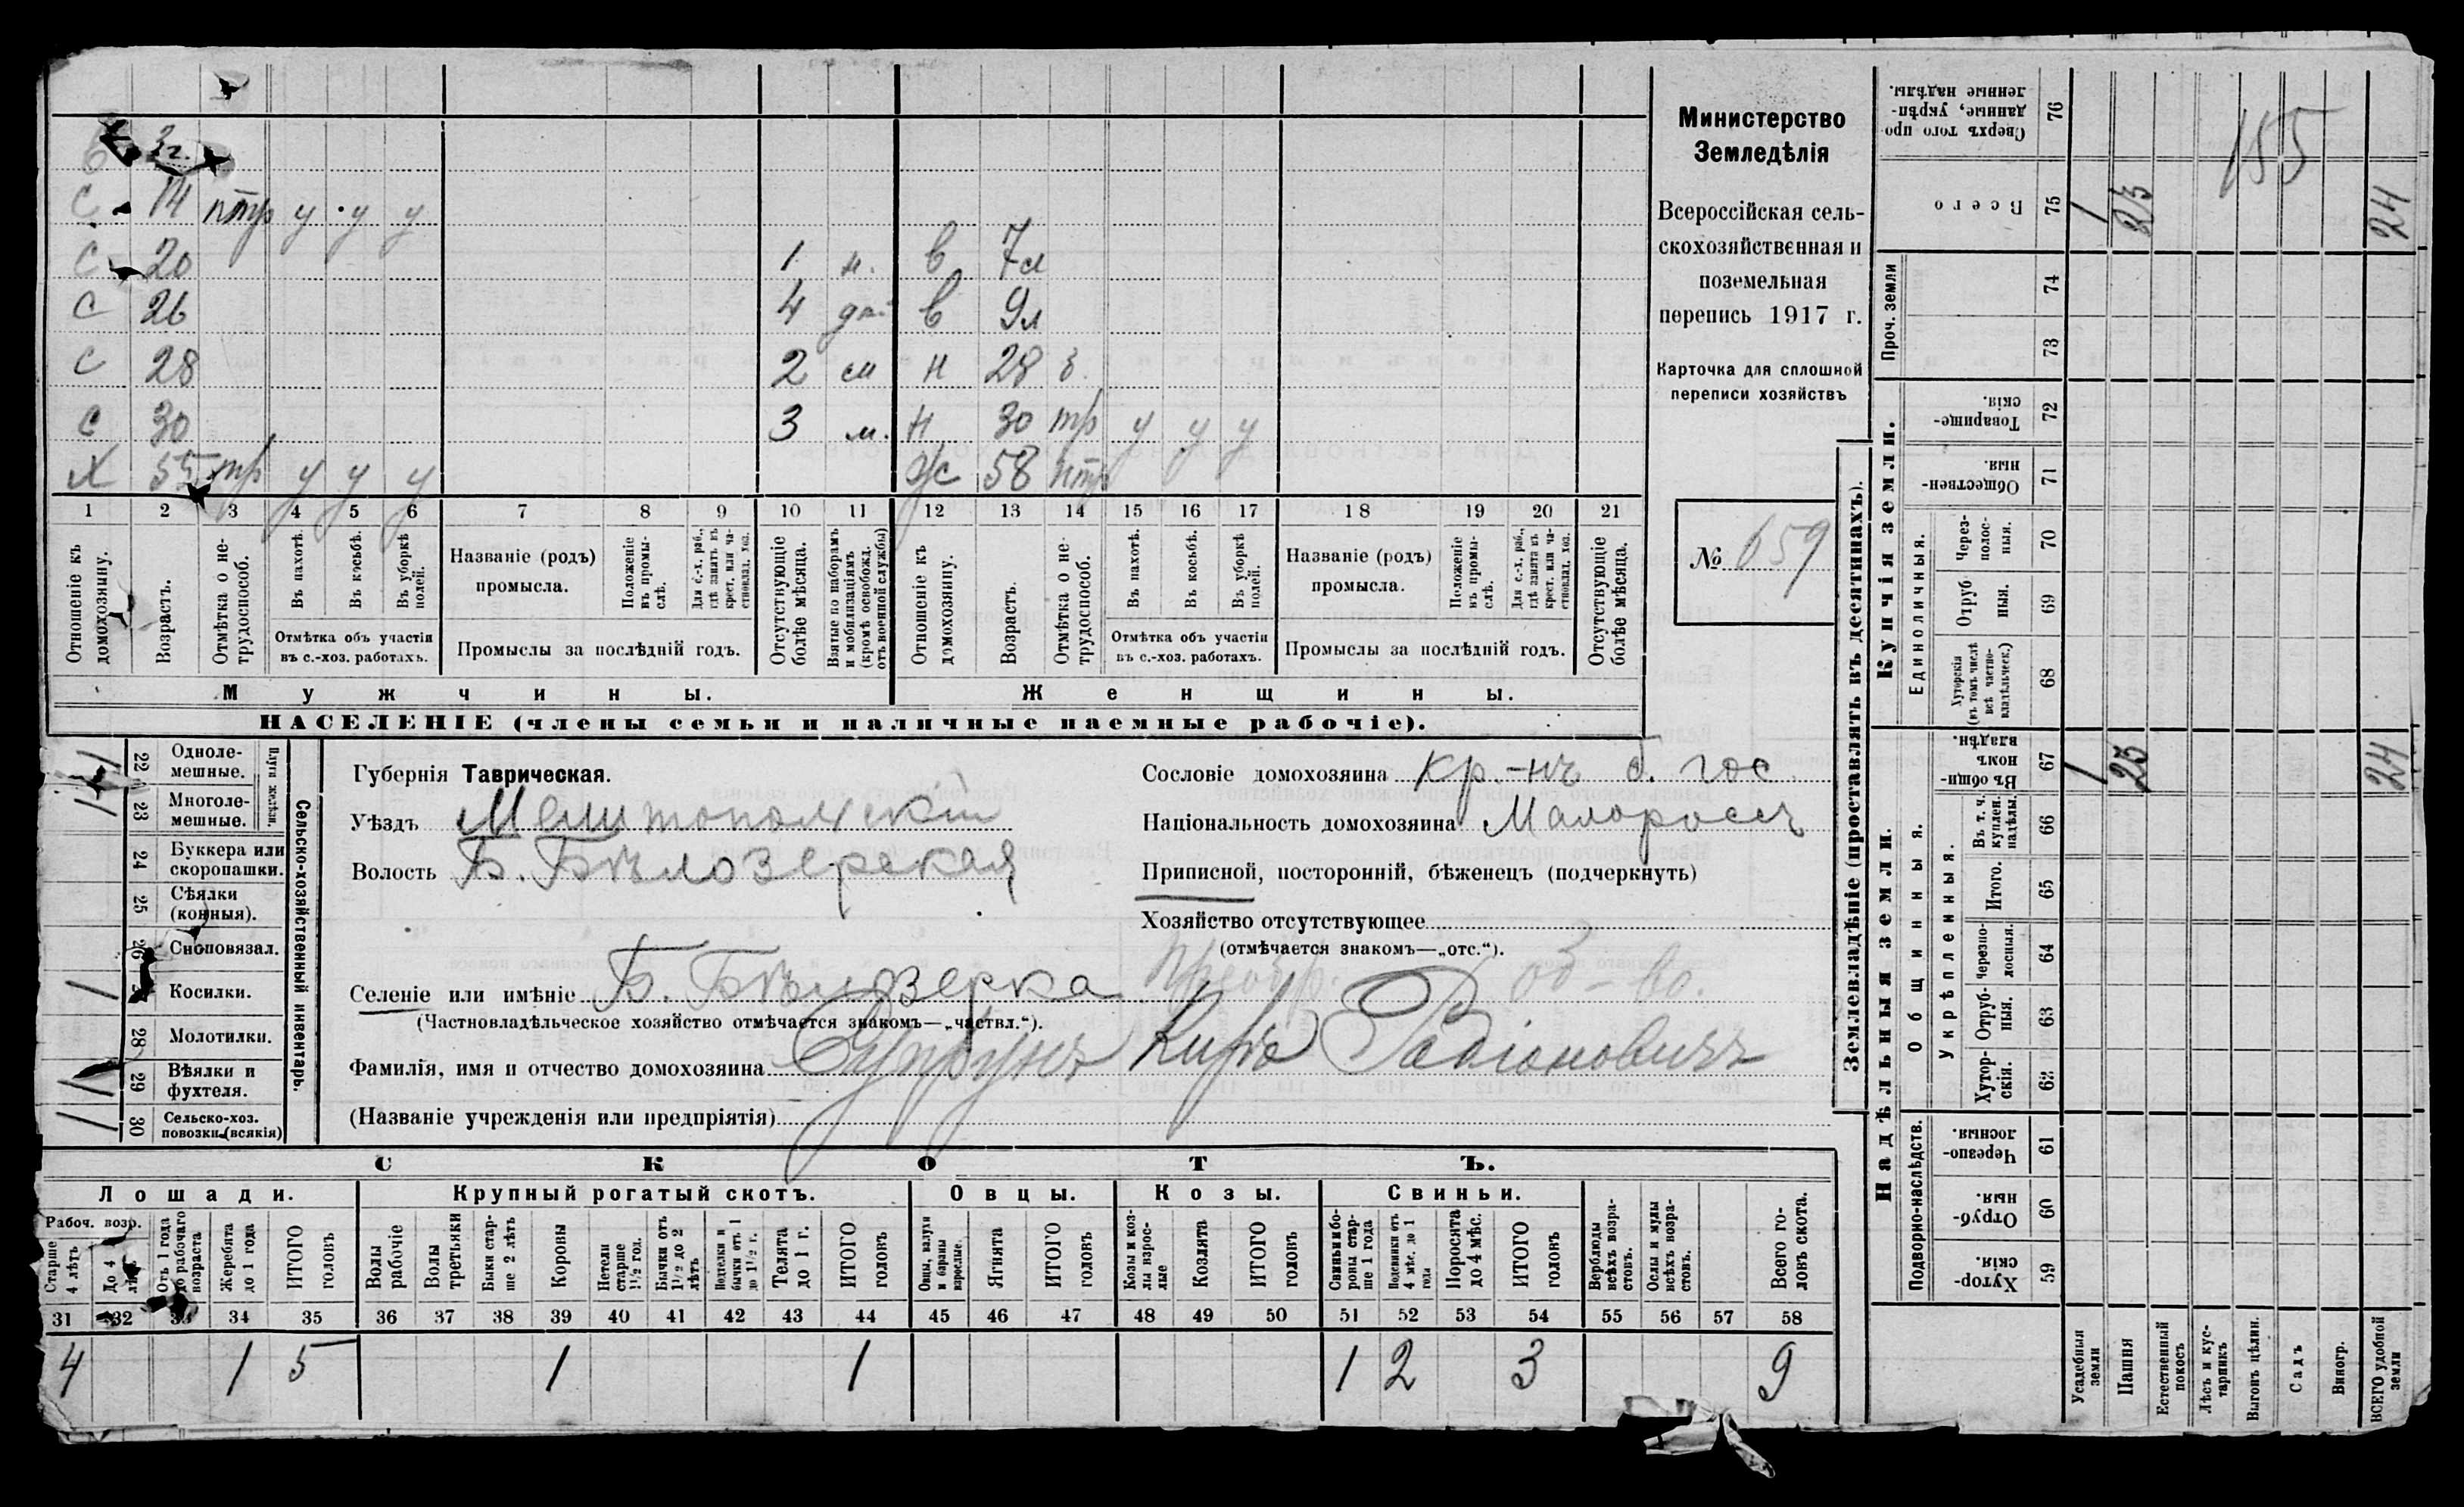 6 3 г.
С 14 птр у у у
С 20 1 н. в 7 л
С 26 4 дп. в 9 л
С 28 2 м н 28 б.
С 30 3 м. н 30 тр у у у
Х 55 тр у у у ж 58 птр
1 2 3 4 5 6 7 8 9 10 11 12 13 14 15 16 17 18 19 20 21
Отношеніе къ домохозяину.
Возрастъ.
Отмѣтка о не-
трудоспособ.
Въ пахотѣ.
Въ косьбѣ.
Въ уборкѣ полей.
Отмѣтка объ участіи
въ с.-хоз. работахъ.
Названіе (родъ)
промысла.
Положеніе
въ промы-
слѣ.
Для с.-х. раб.,
гдѣ занятъ въ
крест. или ча-
стновлад. хоз.
Промыслы за послѣдній годъ.
Отсутствующіе
болѣе мѣсяца.
Взятые по наборамъ
и мобилизаціямъ
(кромѣ освобожд.
отъ военной службы)
Отношеніе къ
домохозяину.
Возрастъ.
Отмѣтка о не-
трудоспособ.
Въ пахотѣ.
Въ косьбѣ.
Въ уборкѣ
полей.
Отмѣтка объ участіи
въ с.-хоз. работахъ.
Названіе (родъ)
промысла.
Положеніе
въ промы-
слѣ.
Для с.-х. раб.,
гдѣ занятъ въ
крест. или ча-
стновлад. хоз.
Промыслы за послѣдній годъ.
Отсутствующіе
болѣе мѣсяца.
Мужчины. Женщины.
НАСЕЛЕНІЕ (члены семьи и наличные наемные рабочіе).
Министерство
Земледѣлія
Всероссійская сель-
скохозяйственная и
поземельная
перепись 1917 г.
Карточка для сплошной
переписи хозяйствъ
№ 659
22 Одноле-
мешные.
23 Многоле-
мешные.
Плуги желѣзн.
24 Буккера или
скоропашки.
25 Сѣялки
(конныя).
26 Сноповязал.
Косилки.
28 Молотилки.
29 Вѣялки и
фухтеля.
30 Сельско-хоз.
повозки (всякія)
Сельско-хозяйственный инвентарь.
Губернія Таврическая.
Уѣздъ Мелитопольскій
Волость Б. Бѣлозерская
Селеніе или имѣніе Б. Бѣлозерка
(Частновладѣльческое хозяйство отмѣчается знакомъ—„частвл.“).
Фамилія, имя и отчество домохозяина Супрунъ Киръ Радіоновичъ
(Названіе учрежденія или предпріятія)
Сословіе домохозяина кр.-нъ б. гос
Національность домохозяина Малороссъ
Приписной, посторонній, бѣженецъ (подчеркнуть)
Хозяйство отсутствующее
(отмѣчается знакомъ—„отс.“).
Преобр. об-во.
СКОТЪ.
Лошади. Крупный рогатый скотъ. Овцы. Козы. Свиньи.
Рабоч. возр.
Старше
4 лѣтъ
До 4
лѣтъ
Отъ 1 года
до рабочаго
возраста
Жеребята
до 1 года
ИТОГО
головъ
Волы
рабочіе
Волы
третьяки
Быки стар-
ше 2 лѣтъ
Коровы
Нетели
старше
1½ год.
Бычки отъ
1½ до 2
лѣтъ
Подтелки и
бычки отъ 1
до 1½ г.
Телята
до 1 г.
ИТОГО
головъ
Овцы, валухи
и бараны
взрослые.
Ягнята
ИТОГО
головъ
Козы и коз-
лы взрос-
лые
Козлята
ИТОГО
головъ
Свиньи и бо-
ровы стар-
ше 1 года
Подсвинки отъ
4 мѣс. до 1
года
Поросята
до 4 мѣс.
ИТОГО
головъ
Верблюды
всѣхъ возра-
стовъ.
Ослы и мулы
всѣхъ возра-
стовъ.
Всего го-
ловъ скота.
31 32 33 34 35 36 37 38 39 40 41 42 43 44 45 46 47 48 49 50 51 52 53 54 55 56 57 58
4 1 5 1 1 1 2 3 9
Землевладѣніе (проставлять въ десятинахъ).
Купчія земли.
Надѣльныя земли.
Сверхъ того про
данные, укрѣп-
ленные надѣлы.
76
155
Всего
75 1 23 24
Проч. земли
74
73
Товарище-
скія.
72
Обществен-
ныя.
71
Единоличныя.
Через-
полос-
ныя.
70
Отруб
ныя.
69
Хуторскія
(въ томъ числѣ
всѣ частно-
владѣльческ.)
68
Общинныя.
Въ общи-
номъ
владѣн.
67 1 23 24
Укрѣпленныя.
Въ т. ч.
куплен.
надѣлы.
66
Итого.
65
Черезпо-
лосныя.
64
Отруб-
ныя.
63
Хутор-
скія.
62
Подворно-наслѣдств.
Черезпо-
лосныя.
61
Отруб-
ныя.
60
Хутор-
скія.
59
Усадебныя
земли
Пашня
Естественный
покосъ
Лѣсъ и кус-
тарникъ
Выгонъ цѣлин.
Садъ
Виногр.
ВСЕГО удобной
земли